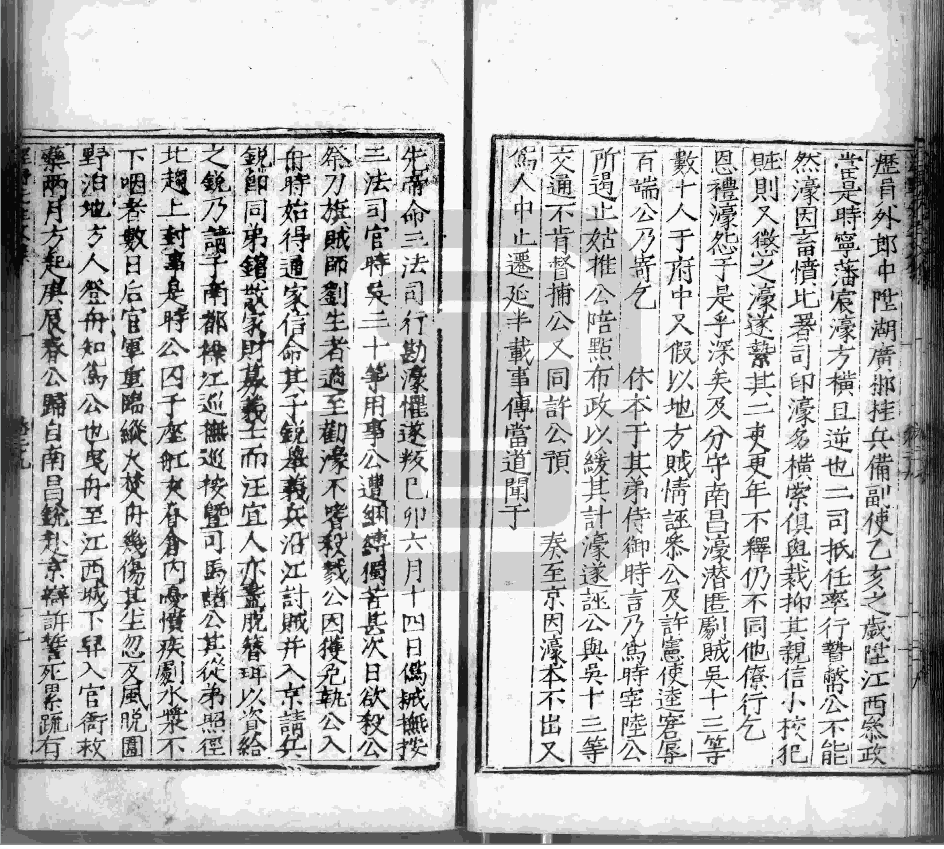 歷員外郎中陞湖廣郴桂兵備副使乙亥之歲陞江西叅政
當是時寧藩宸濠方橫且逆也二司抵任率行贄幣公不能
然濠因畜憤比署司印濠多橫索俱與裁抑其親信小校犯
賍則又懲之濠遂縶其二吏更年不釋仍不同他僚行乞
恩禮濠怨于是乎深矣及分守南昌濠潛匿劇賊吳十三等
數十人于府中又假以地方賊情誣叅公及許憲使逵窘辱
百端公乃寄乞 休本于其弟侍御時言乃爲時宰陸公
所遏止姑推公陪點布政以緩其計濠遂誣公與吳十三等
交通不肯督捕公又同許公預 奏至京因濠本不出又
爲人中止遷延半載事傳當道聞于
先帝命三法司行勘濠懼遂叛已卯六月十四日僞械撫按
三法司官時吳三十等用事公遭綑縛獨苦甚次日欲殺公
祭刀旗賊師劉生者適至勸濠不嗜殺戮公因獲免執公入
舟時始得通家信命其子銳舉義兵沿江討賊并入京請兵
銳即同弟錧散家財募義士而汪宜人亦盡脫簪珥以資給
之銳乃請于南都操江巡撫巡按曁司馬諸公其從弟照徑
北趨上封事是時公囚于座舡友眷倉內憂憤疾劇水漿不
下咽者數日后官軍重臨縱火焚舟幾傷其生忽反風脫圍
野泊地方人登舟知爲公也曳舟至江西城下舁入官衙救
藥兩月方起庚辰春公歸自南昌銳赴京辯訴誓死累疏有